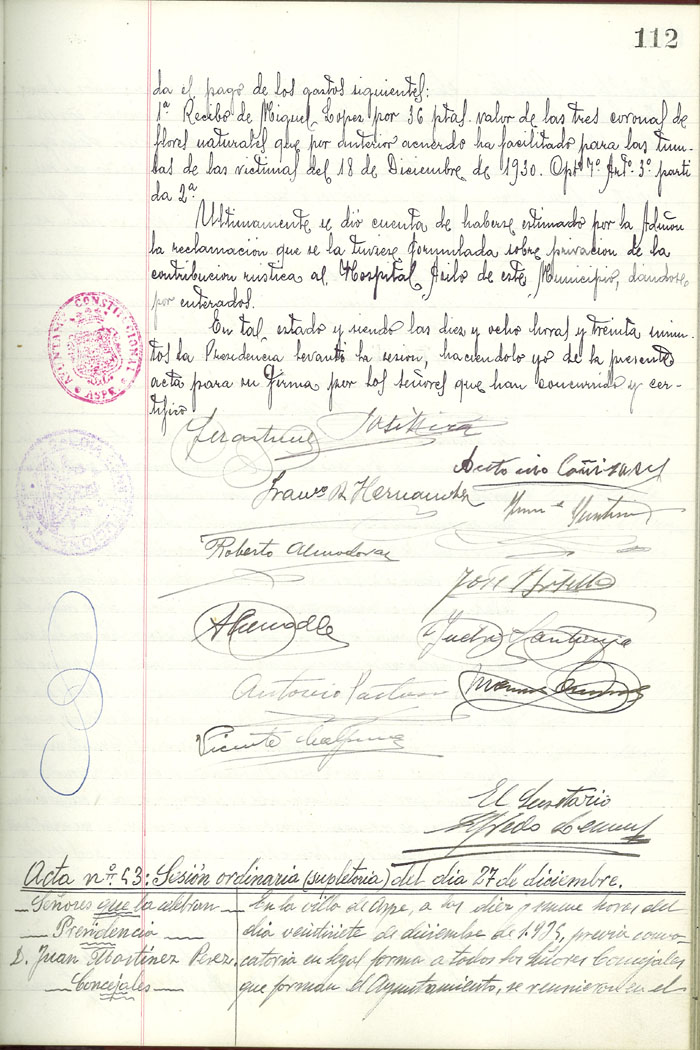 112
da el pago de los gastos siguientes:
1ª Recibo de Miguel Lopez por 36 ptas. valor de las tres coronas de
flores naturales que por anterior acuerdo ha facilitado para las tum-
bas de las victimas del 18 de Diciembre de 1930. Capº 7º Artº 3º parti
da 2ª
Ultimamente se dió cuenta de haberse estimado por la Admon
la reclamación que se la tuviese formulada sobre privacion de la
contribucion rustica al Hospital Asilo de este Municipio, dandose
por enterados.
En tal estado y siendo las diez y ocho horas y treinta minu-
tos la Presidencia levantó la sesion, haciendolo yo de la presente
acta para su firma por los señores que han concurrido y cer-
tifico
AYUNTAMº CONSTITUCIONAL
ASPE
Antonio Cañizares
Hernandez
Roberto Almodovar
José Botella
Antonio Pastor
Vicente
El Secretario
Alfredo
Acta nº 43: Sesión ordinaria (supletoria) del dia 27 de diciembre.
Señores que la celebran
Presidencia
D. Juan Martínez Perez.
Concejales
En la villa de Aspe, a las diez y nueve horas del
dia veintisiete de diciembre de 1.935, previa convo-
catoria en legal forma a todos los señores Concejales
que forman el Ayuntamiento, se reunieron en el